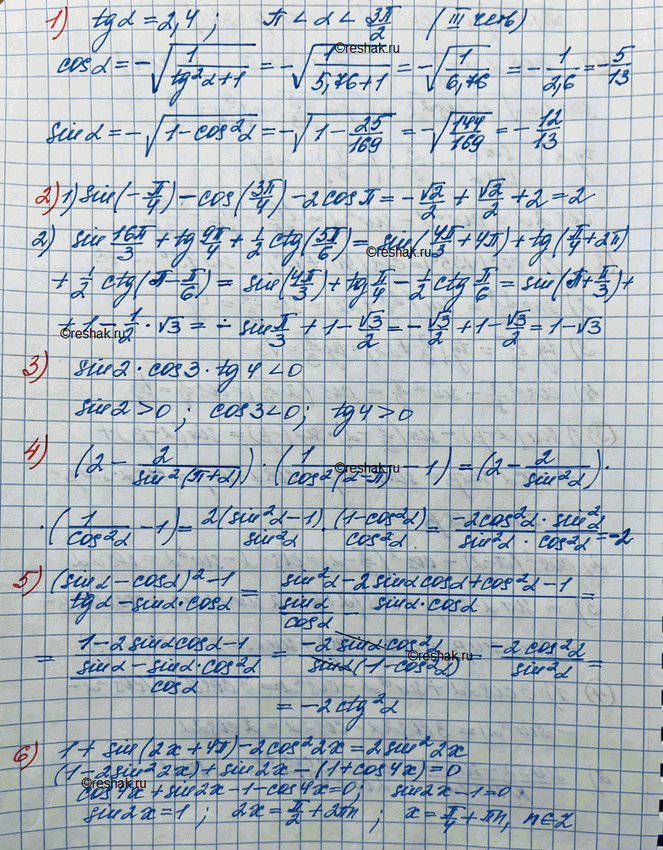 1) tgα = 2,4 ; π < α < 3π/2 (III четв)
cosα = -√(1/(tg²α+1)) = -√(1/(5,76+1)) = -√(1/6,76) = -1/2,6 = -5/13
sinα = -√(1-cos²α) = -√(1-25/169) = -√(144/169) = -12/13
2) 1) sin(-π/4) - cos(3π/4) - 2cosπ = -√2/2 + √2/2 + 2 = 2
2) sin 16π/3 + tg 9π/4 + 1/2 ctg(5π/6) = sin(4π/3 + 4π) + tg(π/4 + 2π)
©reshak.ru
+ 1/2 ctg(π - π/6) = sin(4π/3) + tg π/4 - 1/2 ctg π/6 = sin(π + π/3) +
+ 1 - 1/2 · √3 = - sin π/3 + 1 - √3/2 = -√3/2 + 1 - √3/2 = 1 - √3
©reshak.ru
3) sin2 · cos3 · tg4 < 0
sin2 > 0 ; cos3 < 0 ; tg4 > 0
4) (2 - 2/sin²(π+α)) · (1/cos²(α-π) - 1) = (2 - 2/sin²α) ·
©reshak.ru
· (1/cos²α - 1) = 2(sin²α-1)/sin²α · (1-cos²α)/cos²α = -2cos²α · sin²α/sin²α · cos²α = -2
5) (sinα - cosα)² - 1/tgα - sinα·cosα = sin²α - 2sinαcosα + cos²α - 1/sinα/cosα - sinα·cosα =
= 1 - 2sinαcosα - 1/sinα - sinα·cos²α/cosα = -2sinαcos²α/sinα(1-cos²α) = -2cos²α/sin²α =
©reshak.ru
= -2ctg²α
6) 1 + sin(2x + 4π) - 2cos²2x = 2sin²2x
(1 - 2sin²2x) + sin2x - (1 + cos4x) = 0
©reshak.ru
cos4x + sin2x - 1 - cos4x = 0 ; sin2x - 1 = 0
sin2x = 1 ; 2x = π/2 + 2πn ; x = π/4 + πn, n∈Z